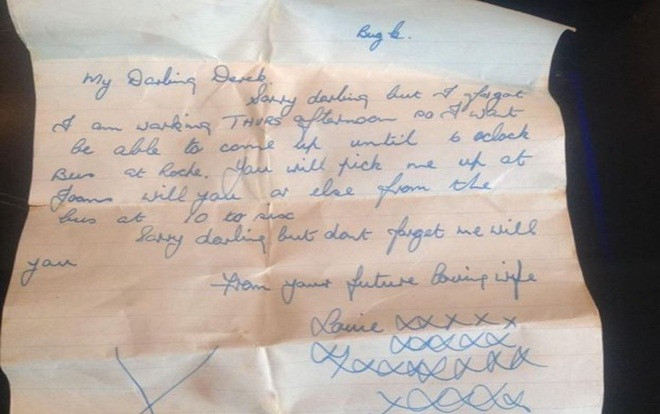 Bugle.
My Darling Derek.
Sorry darling but I forgot
I am working THURS afternoon so I wont
be able to come up until 6 oclock
Bus at Roche. You will pick me up at
Joans will you or else from the
bus at 10 to six
Sorry darling but dont forget me will
you
From your future loving wife
xxxxxx
xxxxx
xxxxxxxxx
x xxxxx